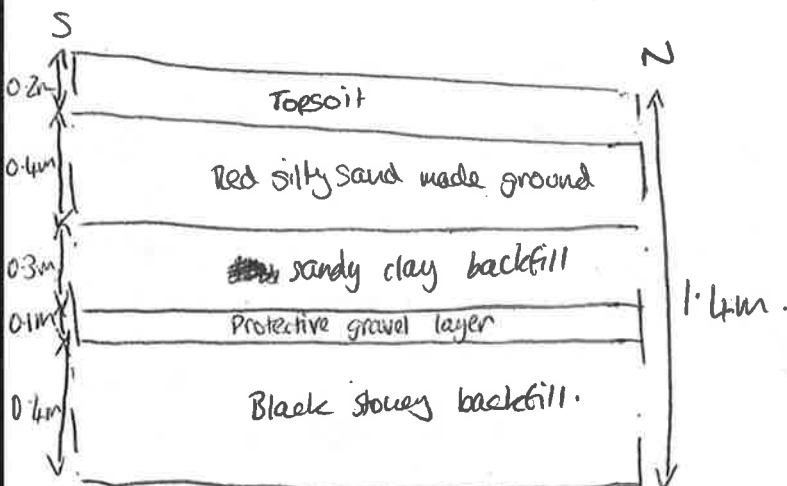 S
N
0.2m
Topsoil
0.4m
Red silty sand made ground
0.3m
sandy clay backfill
0.1m
Protective gravel layer
1.4m.
0.4m
Black stoney backfill.